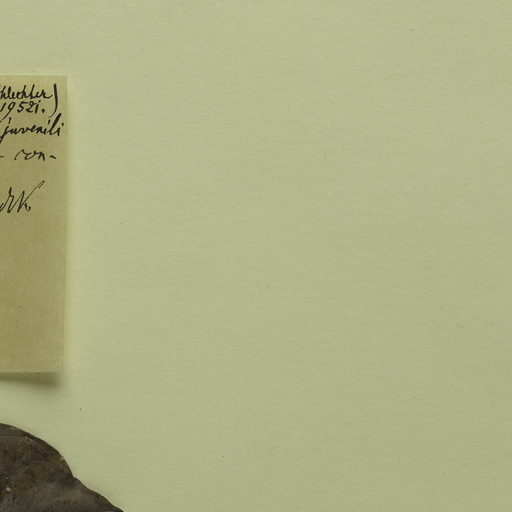 hlechter)
19521.
juvenili
- con-